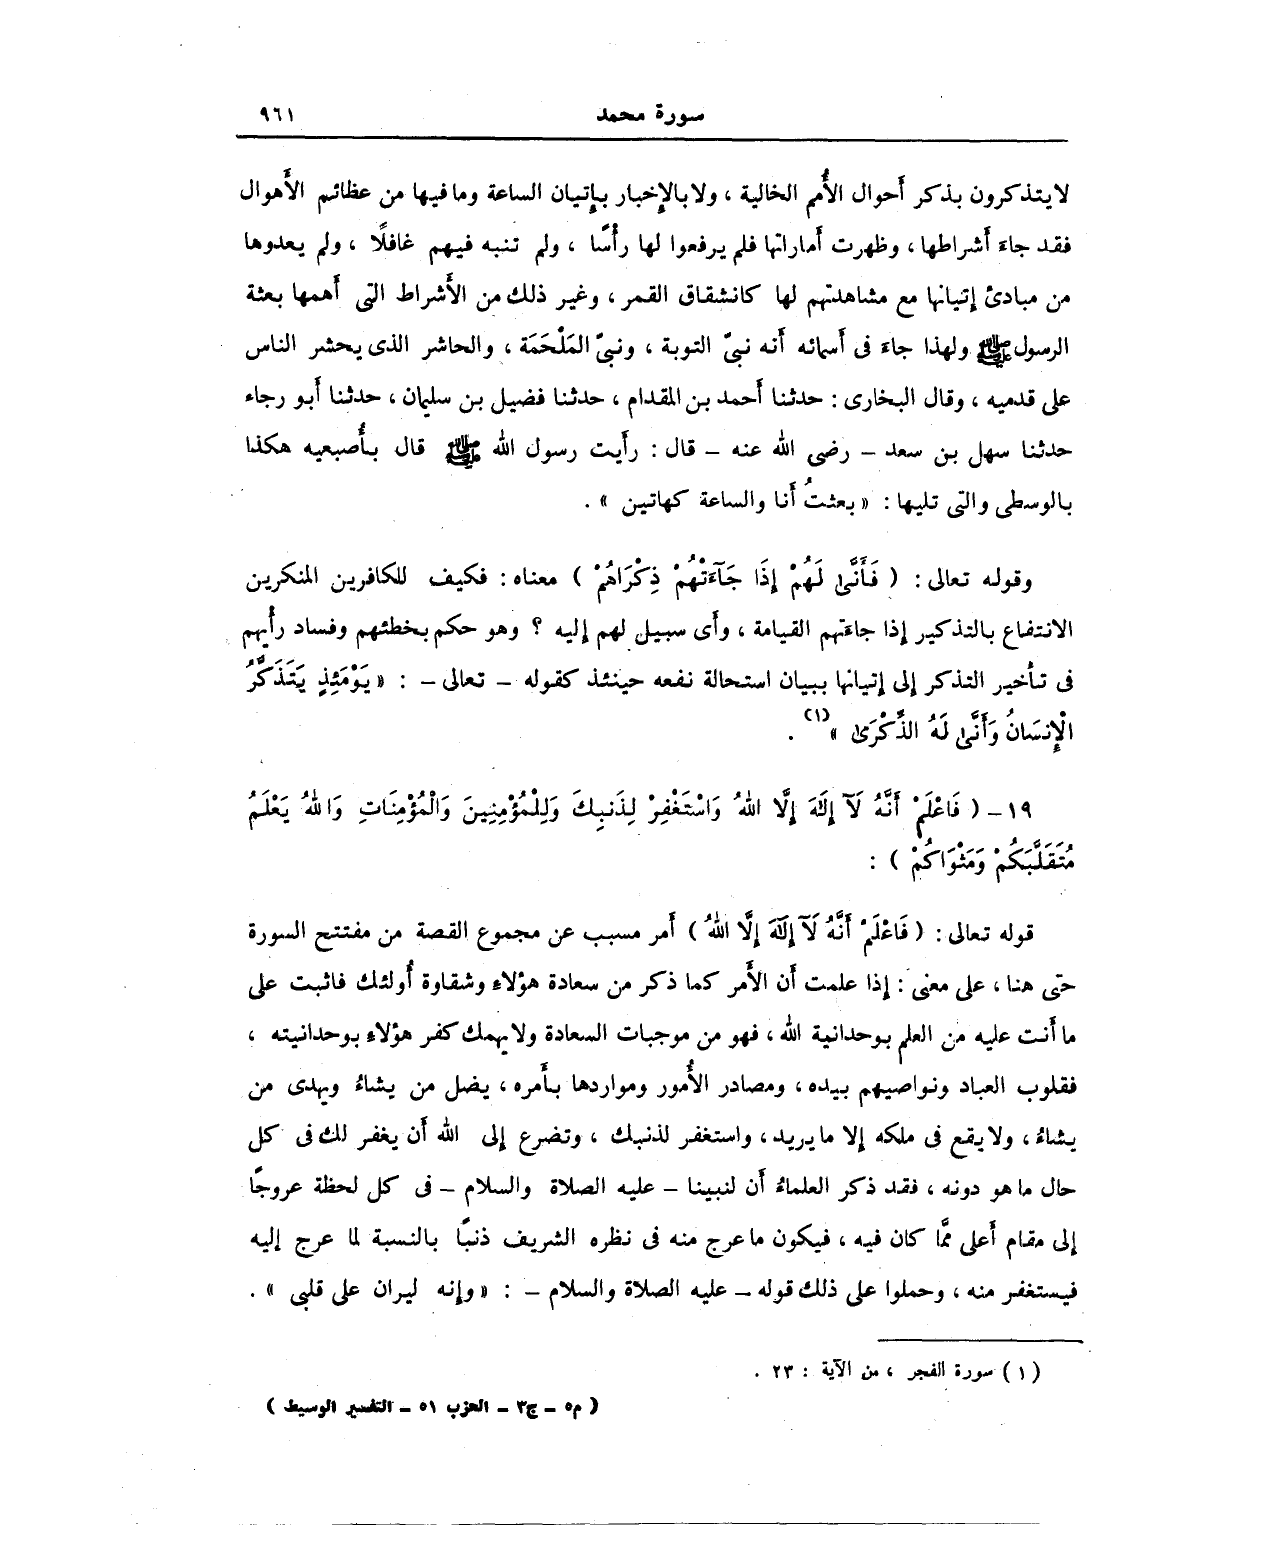 سورة محمد ٩٦١
لا يتذكرون بذكر أحوال الأُمم الخالية ، ولا بالإخبار بإتيان الساعة وما فيها من عظائم الأهوال
فقد جاءَ أشراطها ، وظهرت أماراتها فلم يرفعوا لها رأْسًا ، ولم تنبه فيهم غافلًا ، ولم يعدوها
من مبادئ إتيانها مع مشاهدتهم لها كانشقاق القمر ، وغير ذلك من الأشراط التى أهمها بعثة
الرسول ﷺ ولهذا جاءَ فى أسمائه أنه نبىّ التوبة ، ونبىّ المَلْحَمَة ، والحاشر الذى يحشر الناس
على قدميه ، وقال البخارى : حدثنا أحمد بن المقدام ، حدثنا فضيل بن سليمان ، حدثنا أبو رجاء
حدثنا سهل بن سعد – رضى الله عنه – قال : رأيت رسول الله ﷺ قال بأُصبعيه هكذا
بالوسطى والتى تليها : « بعثتُ أنا والساعة كهاتين » .
وقوله تعالى : ( فَأَنَّىٰ لَهُمْ إِذَا جَآءَتْهُمْ ذِكْرَاهُمْ ) معناه : فكيف للكافرين المنكرين
الانتفاع بالتذكير إذا جاءتهم القيامة ، وأى سبيل لهم إليه ؟ وهو حكم بخطئهم وفساد رأْيهم
فى تأخير التذكر إلى إتيانها ببيان استحالة نفعه حينئذ كقوله – تعالى – : « يَوْمَئِذٍ يَتَذَكَّرُ
الْإِنسَانُ وَأَنَّىٰ لَهُ الذِّكْرَىٰ »(١) .
١٩ – ( فَاعْلَمْ أَنَّهُ لَآ إِلَٰهَ إِلَّا اللهُ وَاسْتَغْفِرْ لِذَنبِكَ وَلِلْمُؤْمِنِينَ وَالْمُؤْمِنَاتِ وَاللهُ يَعْلَمُ
مُتَقَلَّبَكُمْ وَمَثْوَاكُمْ ) :
قوله تعالى : ( فَاعْلَمْ أَنَّهُ لَآ إِلَٰهَ إِلَّا اللهُ ) أمر مسبب عن مجموع القصة من مفتتح السورة
حتى هنا ، على معنى : إذا علمت أن الأمر كما ذكر من سعادة هؤلاءِ وشقاوة أُولئك فاثبت على
ما أنت عليه من العلم بوحدانية الله ، فهو من موجبات السعادة ولا يهمك كفر هؤلاءِ بوحدانيته ،
فقلوب العباد ونواصيهم بيده ، ومصادر الأُمور ومواردها بأمره ، يضل من يشاءُ ويهدى من
يشاءُ ، ولا يقع فى ملكه إلا ما يريد ، واستغفر لذنبك ، وتضرع إلى الله أن يغفر لك فى كل
حال ما هو دونه ، فقد ذكر العلماءُ أن لنبينا – عليه الصلاة والسلام – فى كل لحظة عروجًا
إلى مقام أعلى ممَّا كان فيه ، فيكون ما عرج منه فى نظره الشريف ذنبًا بالنسبة لما عرج إليه
فيستغفر منه ، وحملوا على ذلك قوله – عليه الصلاة والسلام – : « وإنه ليران على قلبى » .
( ١ ) سورة الفجر ، من الآية : ٢٣ .
( م٥ – ج٣ – الحزب ٥١ – التفسير الوسيط )